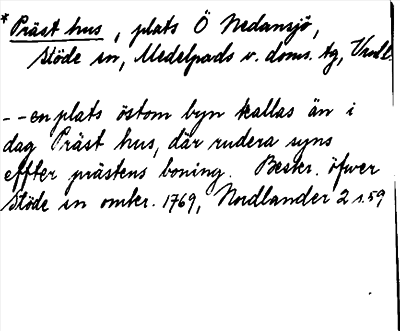 *Präst hus, plats Ö Nedansjö,
Stöde sn, Medelpads v. doms. tg, Vnrl.
--en plats östom byn kallas än i
dag Präst hus, där rudera syns
effter prästens boning. Beskr. öfwer
Stöde sn omkr. 1769, Nordlander 2 s. 59